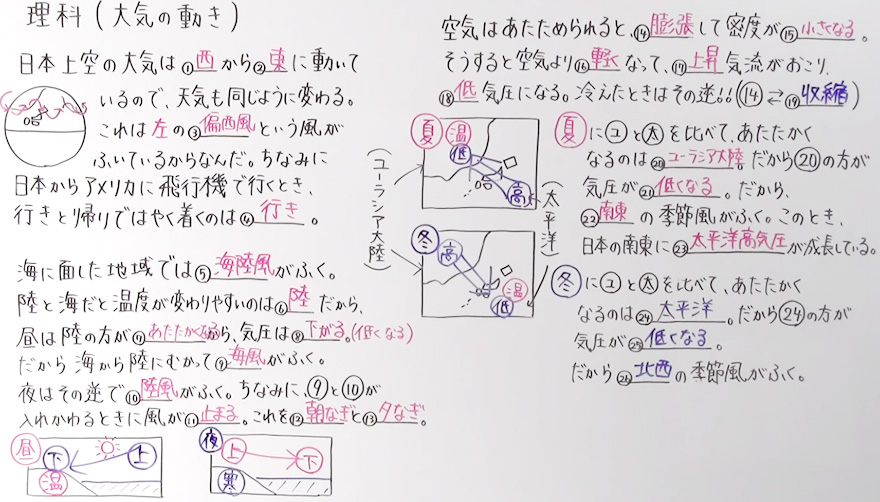 理科(大気の動き)
日本上空の大気は①西から②東に動いて
いるので、天気も同じように変わる。
これは左の③偏西風という風が
ふいているからなんだ。ちなみに
日本からアメリカに飛行機で行くとき、
行きと帰りではやく着くのは④行き。
海に面した地域では⑤海陸風がふく。
陸と海だと温度が変わりやすいのは⑥陸だから、
昼は陸の方が⑦あたたかくなるから、気圧は⑧下がる。(低くなる)
だから海から陸にむかって⑨海風がふく。
夜はその逆で⑩陸風がふく。ちなみに、⑨と⑩が
入れかわるときに風が⑪止まる。これを⑫朝なぎと⑬夕なぎ。
昼
下
上
温
夜
上
下
寒
空気はあたためられると、⑭膨張して密度が⑮小さくなる。
そうすると空気より⑯軽くなって、⑰上昇気流がおこり、
⑱低気圧になる。冷えたときはその逆!!(⑭⇄⑲収縮)
夏 温
低
高
(ユーラシア大陸)
(太平洋)
冬
高
温
低
夏に㋴と㋟を比べて、あたたかく
なるのは⑳ユーラシア大陸。だから⑳の方が
気圧が㉑低くなる。だから、
㉒南東の季節風がふく。このとき、
日本の南東に㉓太平洋高気圧が成長している。
冬に㋴と㋟を比べて、あたたかく
なるのは㉔太平洋。だから㉔の方が
気圧が㉕低くなる。
だから㉖北西の季節風がふく。